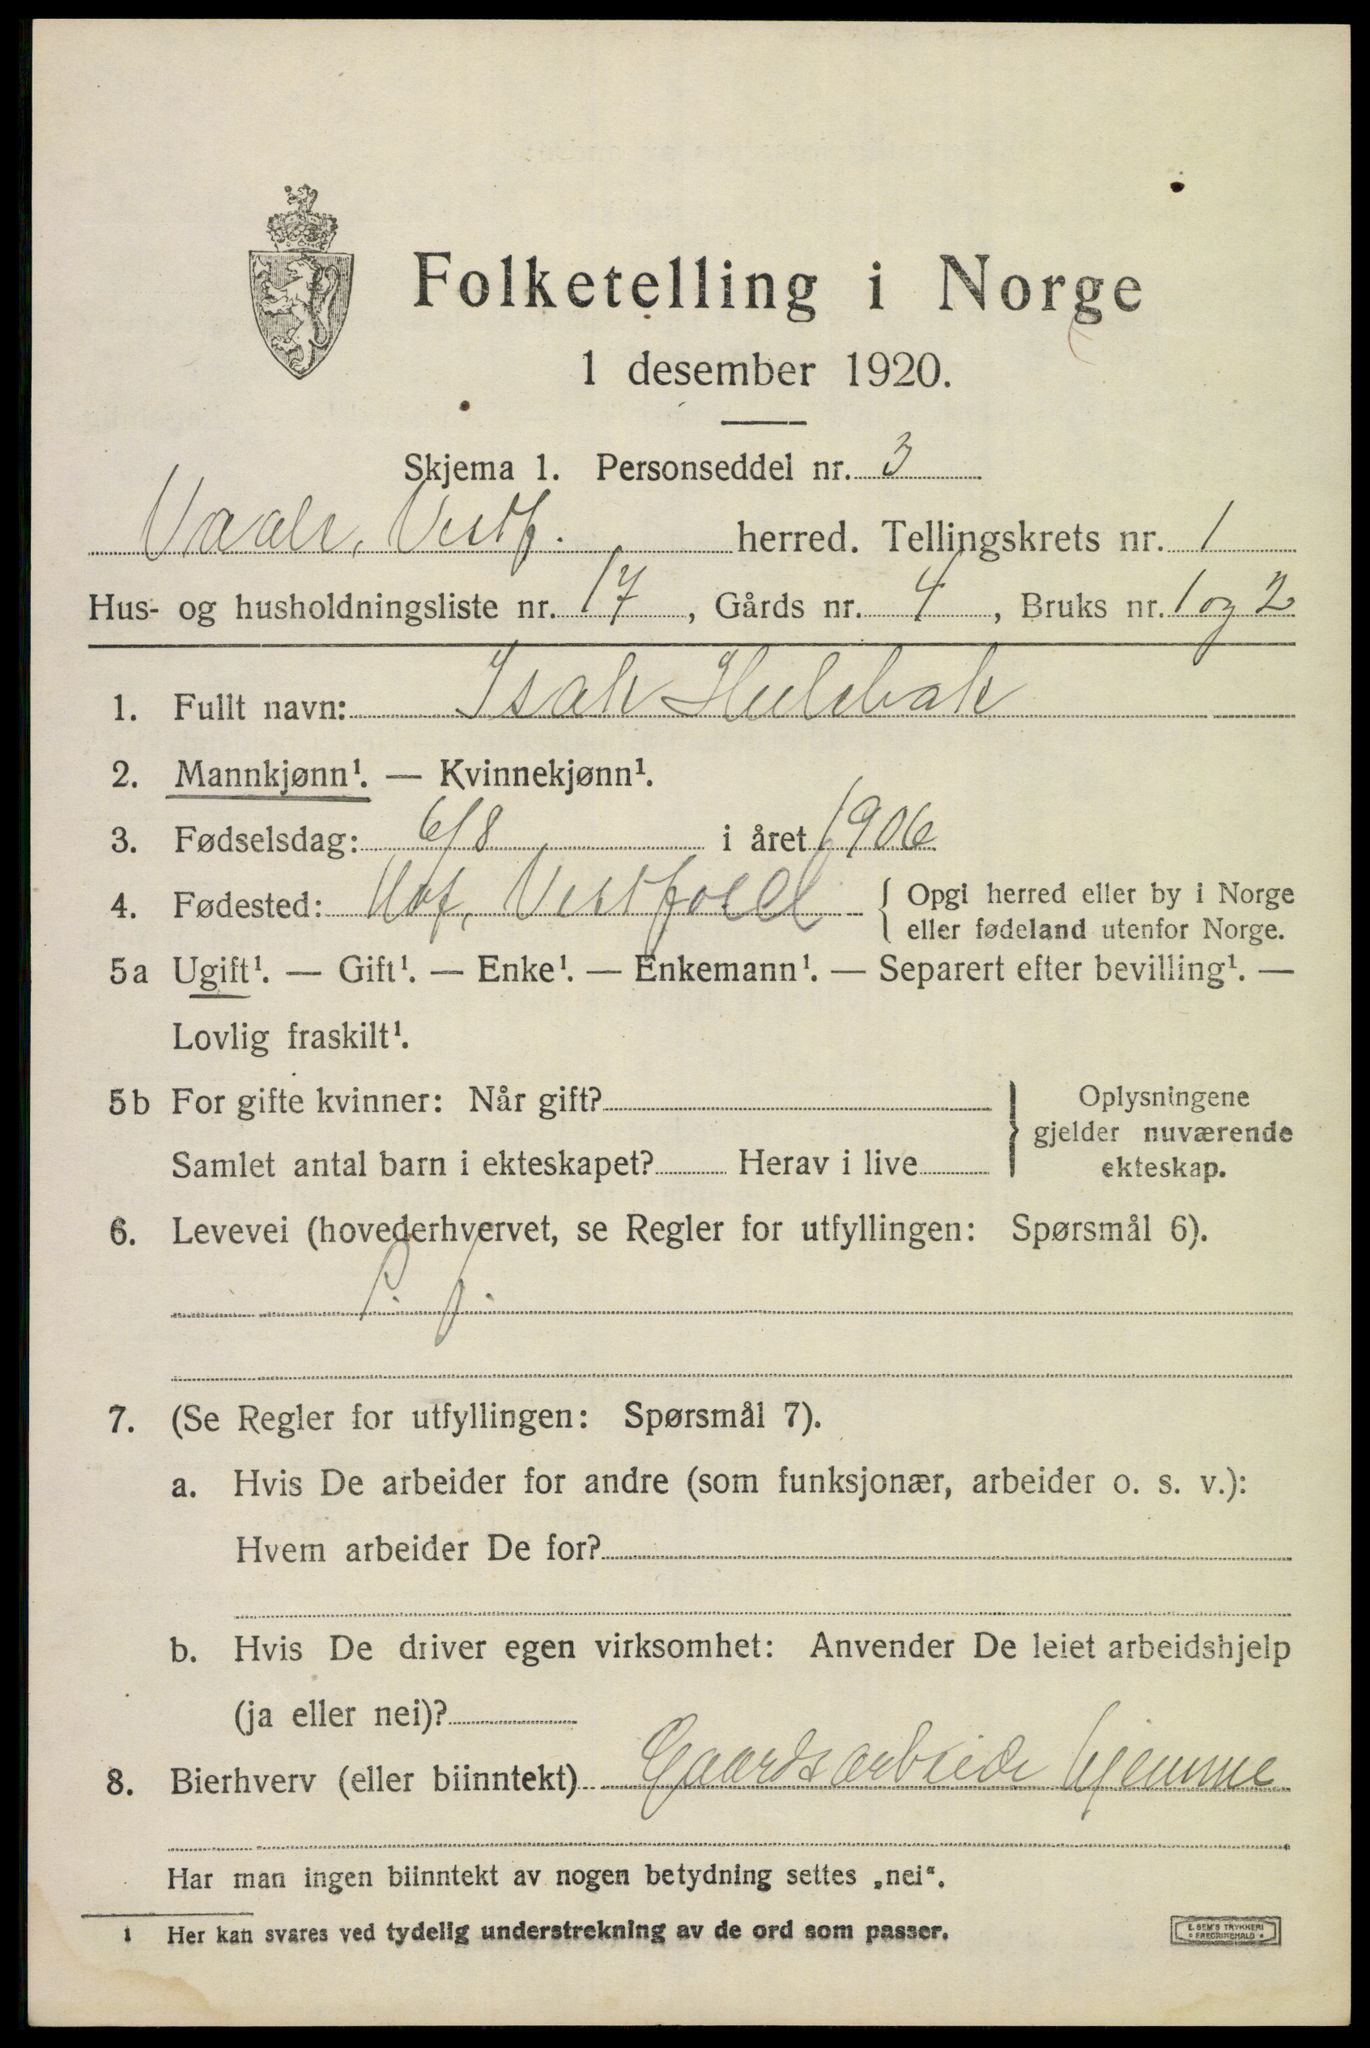 Folketelling i Norge
1 desember 1920.
Skjema 1. Personseddel nr. 3
Vaale, Vestf. herred. Tellingskrets nr. 1
Hus- og husholdningsliste nr. 17, Gårds nr. 4, Bruks nr. 1 og 2
1. Fullt navn: Isak Hulebak
2. Mannkjønn¹. — Kvinnekjønn¹.
3. Fødselsdag: 6/8 i året 1906
4. Fødested: Hof, Vestfold { Opgi herred eller by i Norge
eller fødeland utenfor Norge.
5a Ugift¹. — Gift¹. — Enke¹. — Enkemann¹. — Separert efter bevilling¹. —
Lovlig fraskilt¹.
5b For gifte kvinner: Når gift?
Samlet antal barn i ekteskapet? Herav i live
Oplysningene
gjelder nuværende
ekteskap.
6. Levevei (hovederhvervet, se Regler for utfyllingen: Spørsmål 6).
7. (Se Regler for utfyllingen: Spørsmål 7).
a. Hvis De arbeider for andre (som funksjonær, arbeider o. s. v.):
Hvem arbeider De for?
b. Hvis De driver egen virksomhet: Anvender De leiet arbeidshjelp
(ja eller nei)?
8. Bierhverv (eller biinntekt) Gaardsarbeide hjemme
Har man ingen biinntekt av nogen betydning settes „nei“.
1 Her kan svares ved tydelig understrekning av de ord som passer.
E. SEM'S TRYKKERI
FREDRIKSHALD